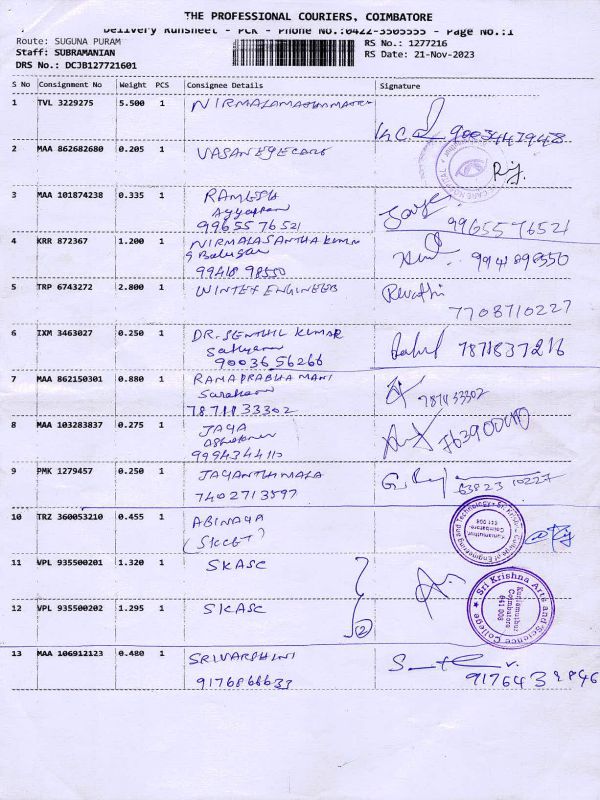 THE PROFESSIONAL COURIERS, COIMBATORE
Delivery Runsheet - PCK - Phone No.:0422-3505555 - Page No.:1
Route: SUGUNA PURAM
Staff: SUBRAMANIAN
DRS No.: DCJB127721601
RS No.: 1277216
RS Date: 21-Nov-2023
S No Consignment No Weight PCS Consignee Details Signature
1 TVL 3229275 5.500 1
2 MAA 862682680 0.205 1 VASAN EYE CARE
3 MAA 101874238 0.335 1 RAMESH
Ayyappan
9965576521 9965576521
4 KRR 872367 1.200 1 NIRMALASANTHA KUMAR
9941898550 9941898550
5 TRP 6743272 2.800 1 WINTEX ENGINEER Revathi
7708710227
6 IXM 3463027 0.250 1 DR. SENTHIL KUMAR
9003656266 7871837216
7 MAA 862150301 0.880 1 RAMAPRABHA MANI
7871133302
8 MAA 103283837 0.275 1 JAYA
9 PMK 1279457 0.250 1 JAYANTHIMALA
7402713597 63823 10227
10 TRZ 360053210 0.455 1 ABINAYA
(SKCET)
College of Engineering and Technology
Kuniamuthur
Coimbatore
641 008
11 VPL 935500201 1.320 1 SKASC
12 VPL 935500202 1.295 1 SKASC
(2)
Sri Krishna Arts and Science College
Kuniamuthur
Coimbatore
641 008
13 MAA 106912123 0.480 1 SRIVARSHINI